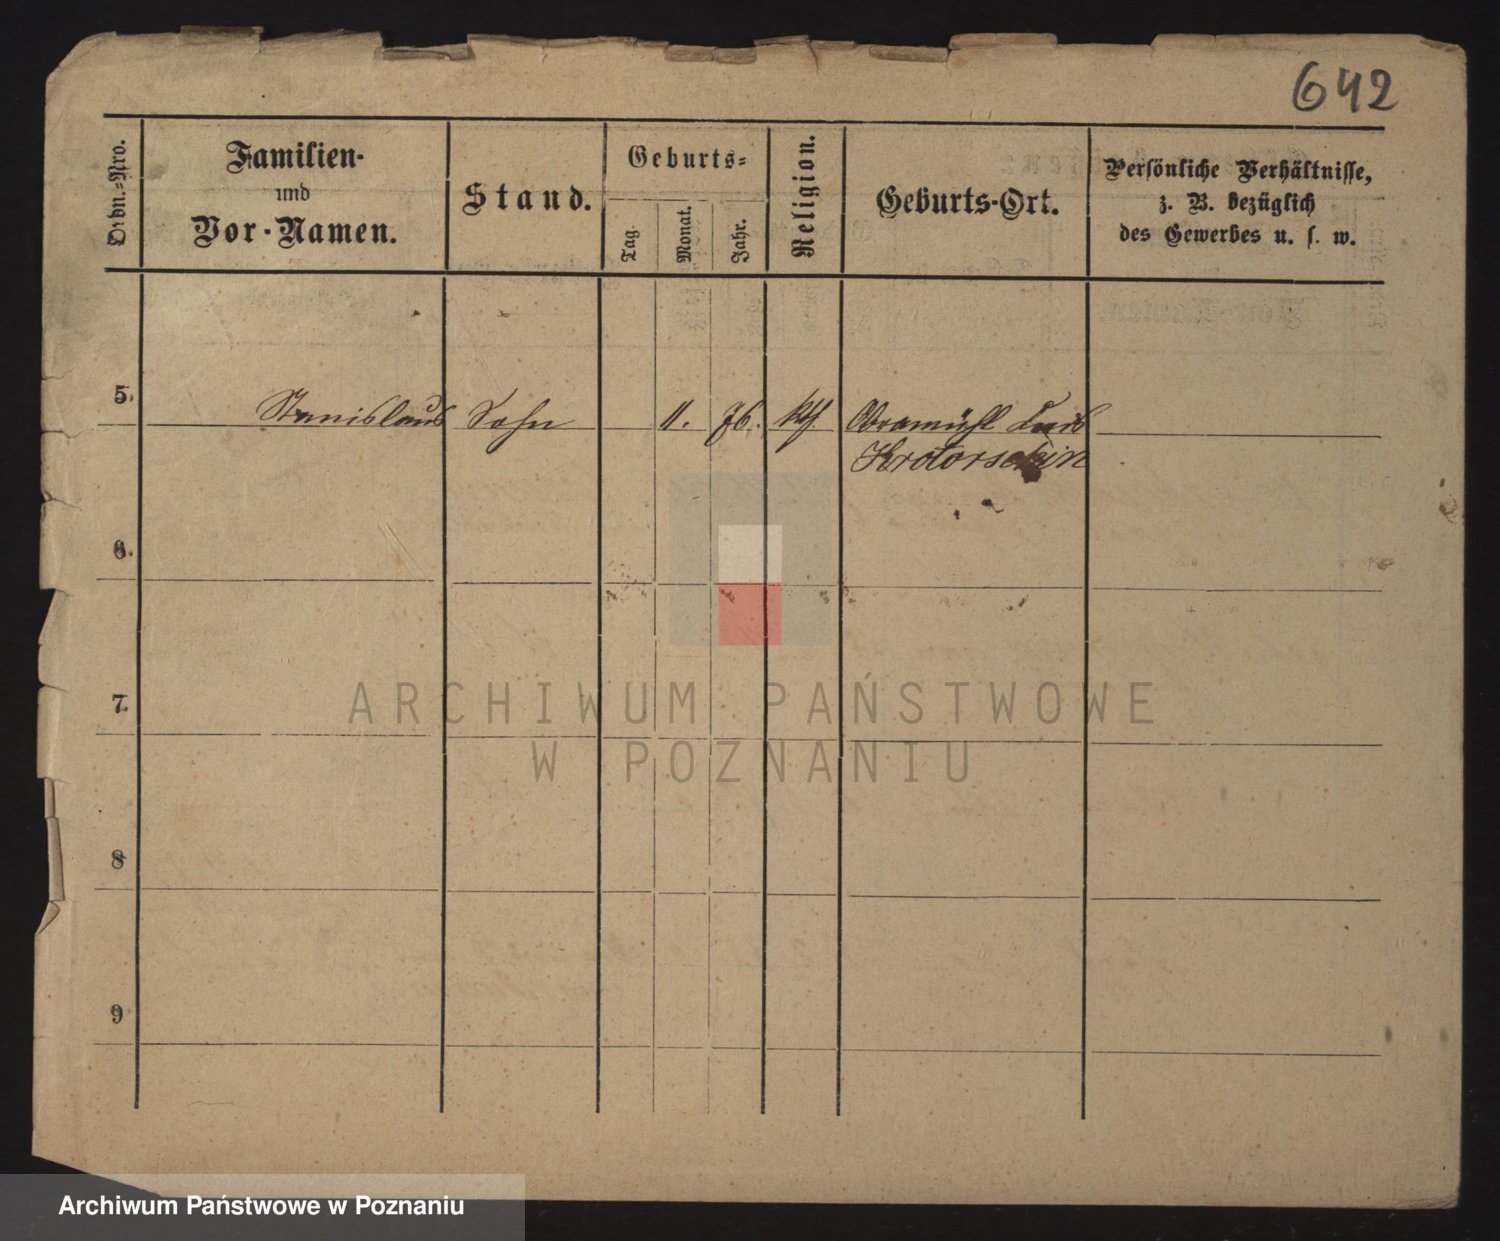 642
Ordn.-Nro.
Familien-
und
Vor-Namen.
Stand.
Geburts-
Tag.
Monat.
Jahr.
Religion.
Geburts-Ort.
Persönliche Verhältnisse,
z. B. bezüglich
des Gewerbes u. s. w.
5. Stanislaus Sohn 11. 76. kth Obramühl Kreis
Krotoschin
6.
7.
8
9
ARCHIWUM PAŃSTWOWE
W POZNANIU
Archiwum Państwowe w Poznaniu